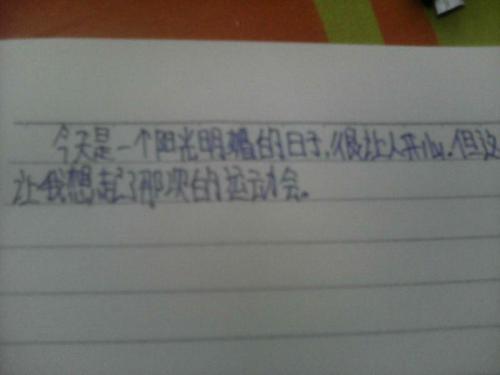 今天是一个阳光明媚的日子,很让人开心.但这
让我想起了那次的运动会。